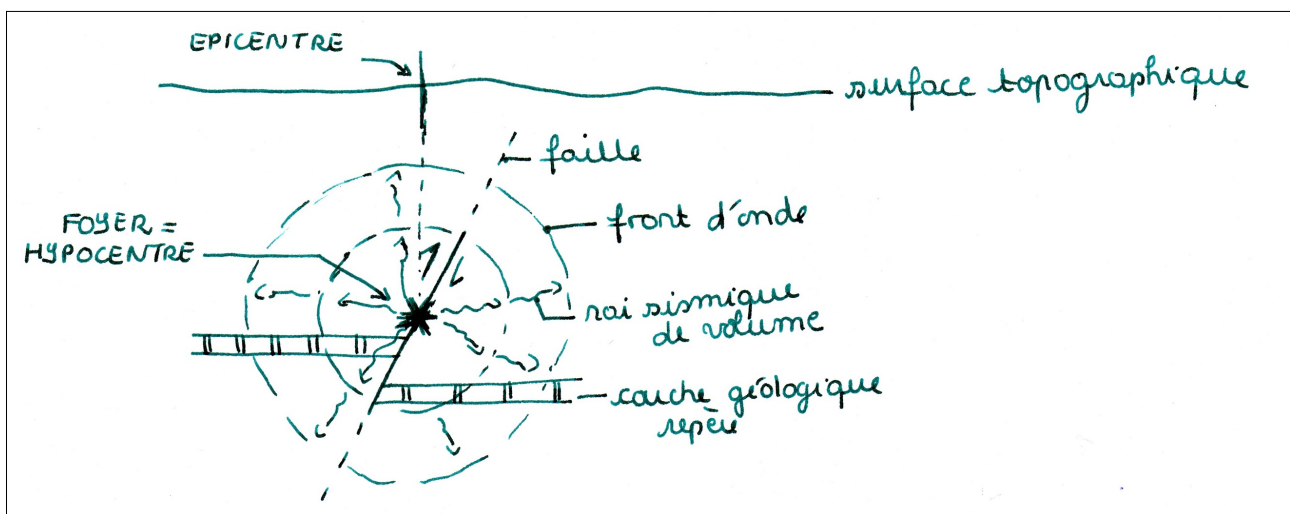 EPICENTRE
surface topographique
faille
FOYER =
HYPOCENTRE
front d'onde
rai sismique
de volume
couche géologique
repère